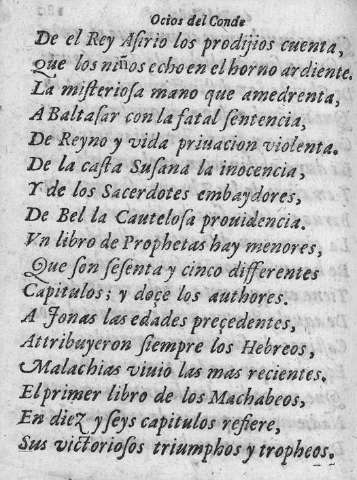 Ocios del Conde
De el Rey Aſirio los prodijios cuenta,
Que los niños echo en el horno ardiente.
La miſterioſa mano que amedrenta,
A Baltaſar con la fatal ſentencia,
De Reyno y vida priuacion violenta.
De la caſta Suſana la inocencia,
Y de los Sacerdotes embaydores,
De Bel la Cauteloſa prouidencia.
Vn libro de Prophetas hay menores,
Que ſon ſeſenta y cinco differentes
Capitulos; y doçe los authores.
A Jonas las edades preçedentes,
Attribuyeron ſiempre los Hebreos,
Malachias viuio las mas recientes.
El primer libro de los Machabeos,
En diez y ſeys capitulos refiere,
Sus victorioſos triumphos y tropheos.